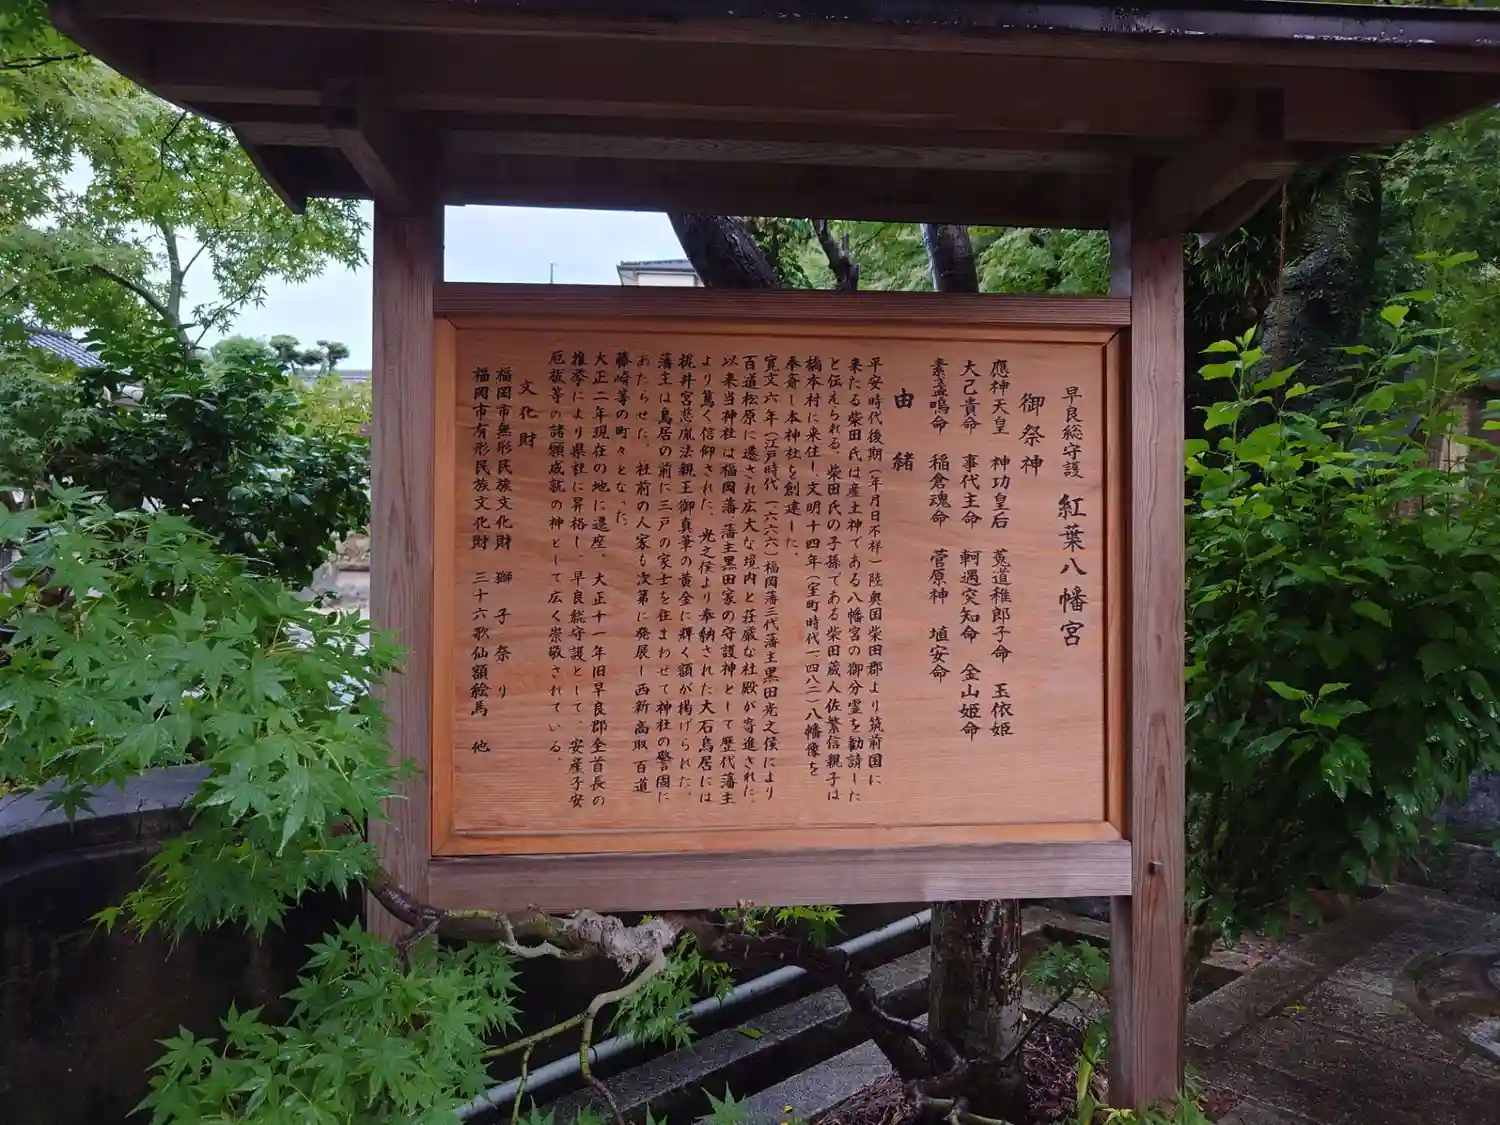 早良総守護 紅葉八幡宮
御祭神
應神天皇 神功皇后 菟道稚郎子命 玉依姫
大己貴命 事代主命 軻遇突知命 金山姫命
素盞嗚命 稲倉魂命 菅原神 埴安命
由緒
平安時代後期(年月日不祥)陸奥国柴田郡より筑前国に
来たる柴田氏は産土神である八幡宮の御分霊を勧請した
と伝えられる。柴田氏の子孫である柴田蔵人佐繁信親子は
橋本村に来住し文明十四年(室町時代一四八二)八幡像を
奉斎し本神社を創建した。
寛文六年(江戸時代一六六六)福岡藩三代藩主黒田光之侯により
百道松原に遷され広大な境内と荘厳な社殿が寄進された。
以来当神社は福岡藩(藩主黒田家の守護神として歴代藩主
より篤く信仰された。光之侯より奉納された大石鳥居には
梶井宮慈胤法親王御真筆の黄金に輝く額が掲げられた。
藩主は鳥居の前に三戸の家士を住まわせて神社の警固に
あたらせた。社前の人家も次第に発展し西新 高取 百道
藤崎等の町々となった。
大正二年現在の地に遷座。大正十一年旧早良郡全首長の
推挙により県社に昇格し、早良総守護として、安産子安
厄祓等の諸願成就の神として広く崇敬されている。
文化財
福岡市無形民俗文化財 獅子祭り
福岡市有形民族文化財 三十六歌仙額絵馬 他